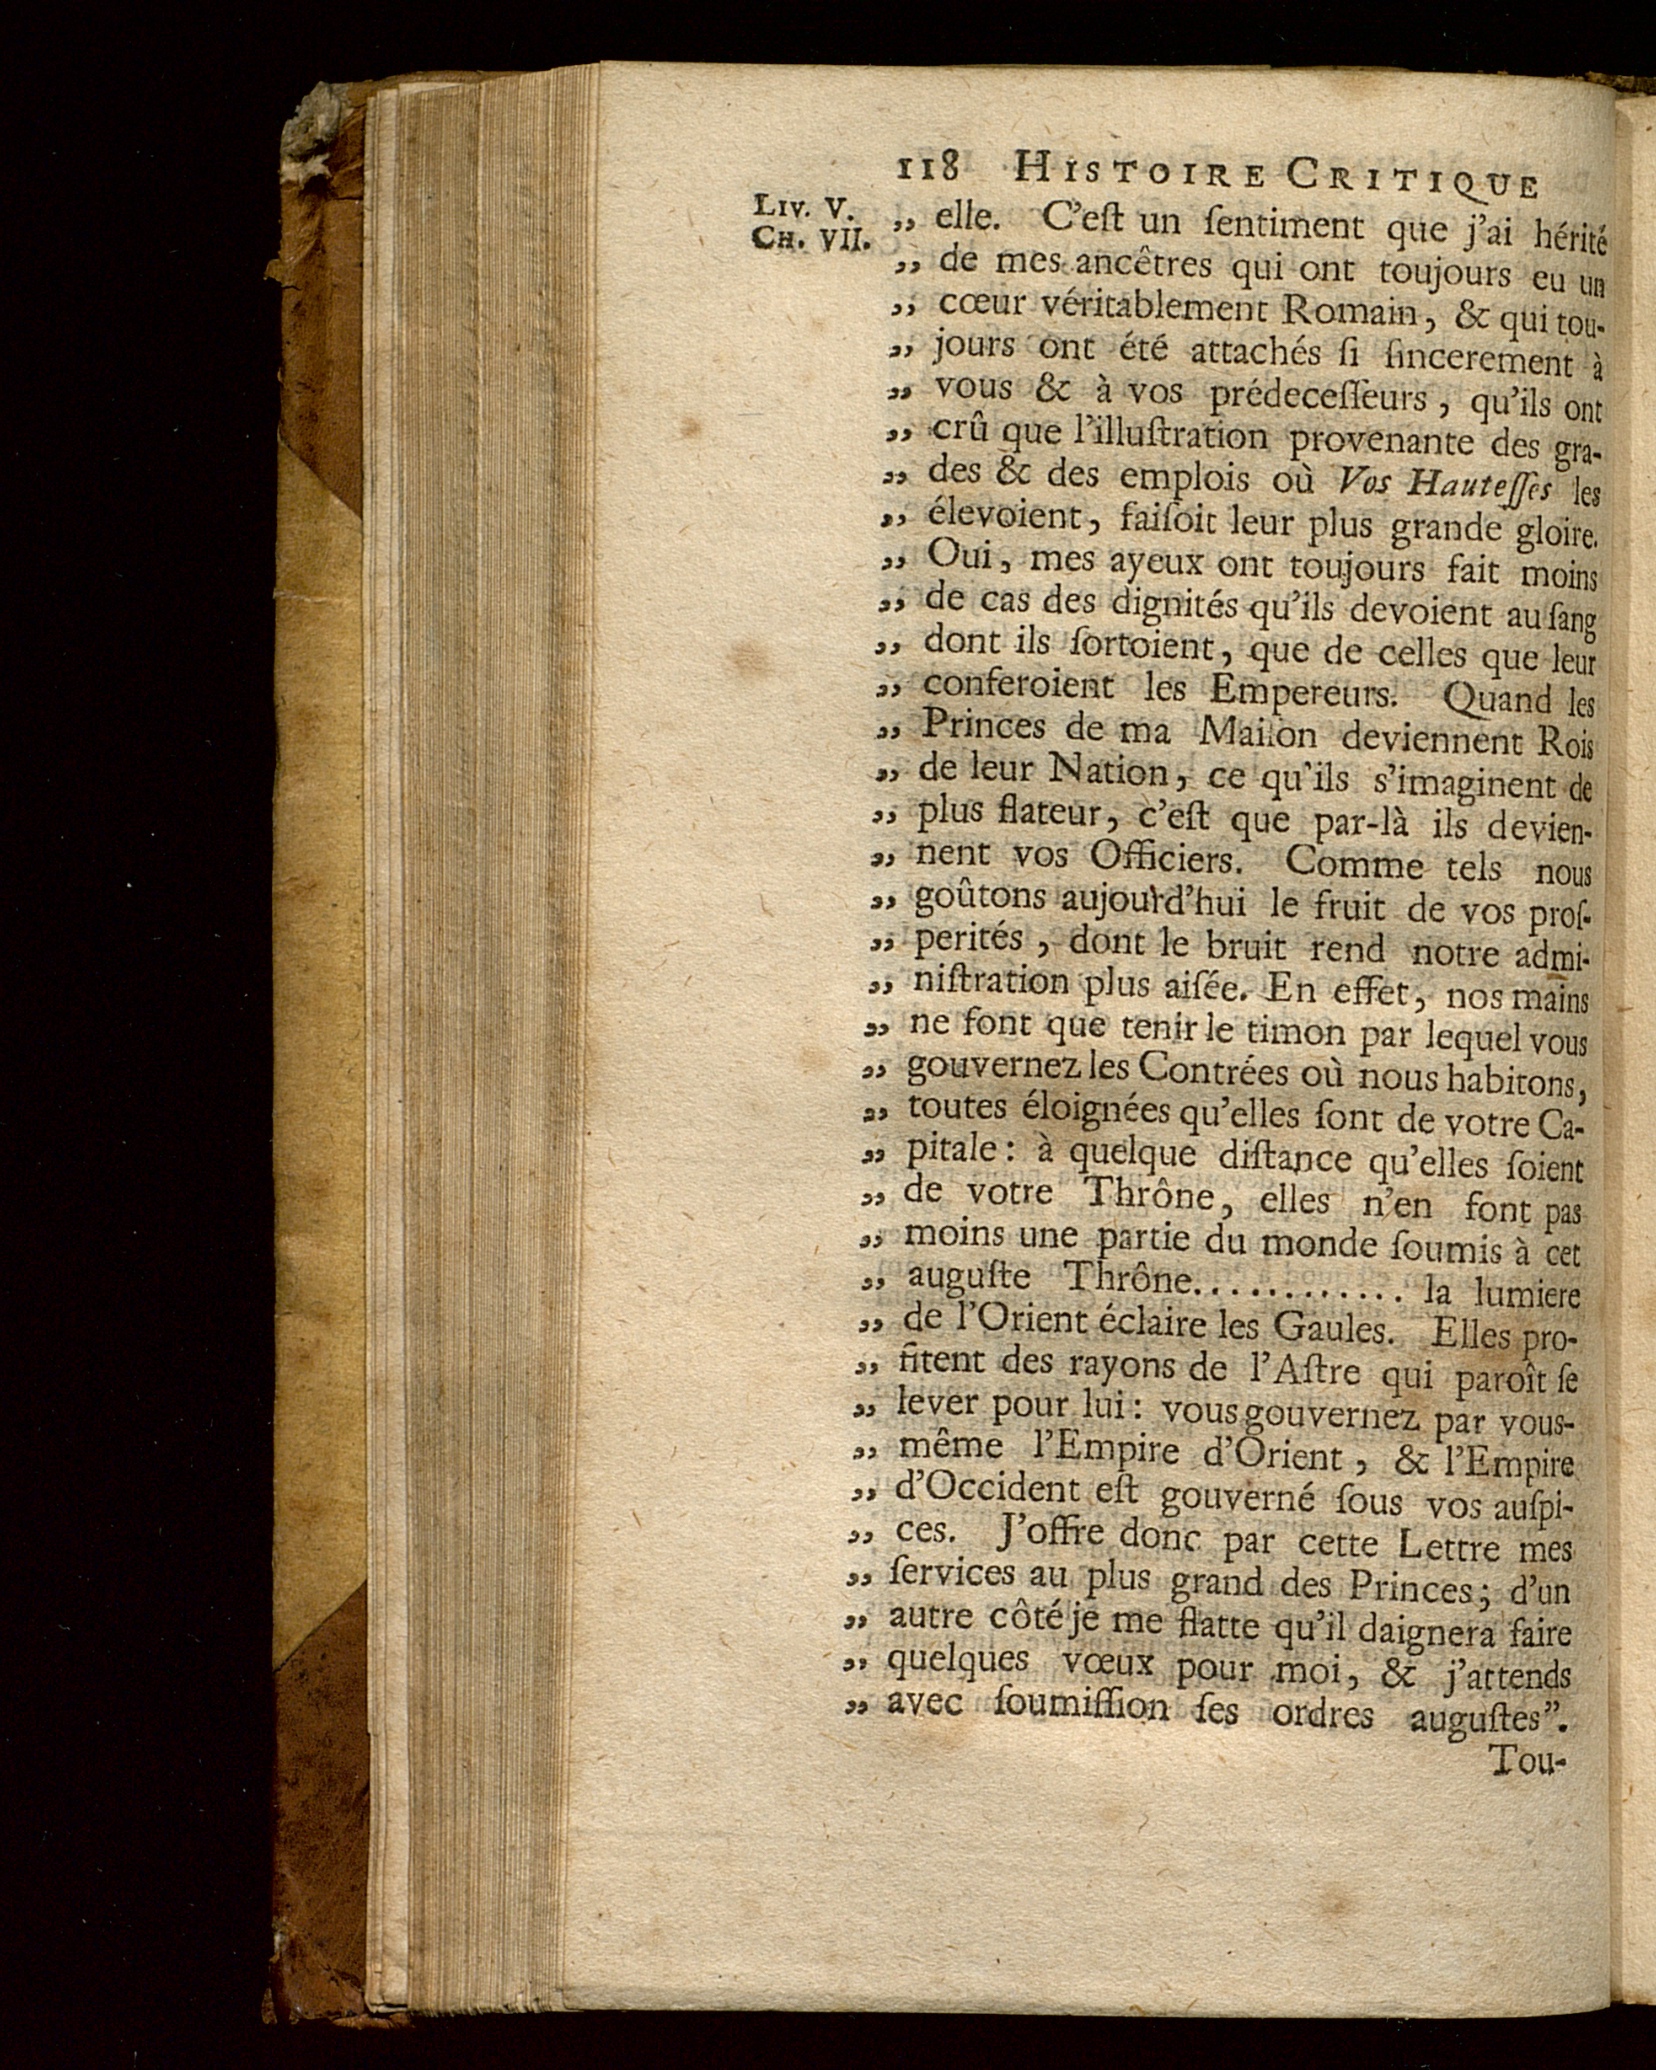 118 HISTOIRE CRITIQUE
LIV. V.
CH. VII.
„ elle. C'eſt un ſentiment que j'ai hérité
„ de mes ancêtres qui ont toujours eu un
„ cœur véritablement Romain, & qui tou-
„ jours ont été attachés ſi ſincerement à
„ vous & à vos prédeceſſeurs, qu'ils ont
„ crû que l'illuſtration provenante des gra-
„ des & des emplois où Vos Hauteſſes les
„ élevoient, faiſoit leur plus grande gloire.
„ Oui, mes ayeux ont toujours fait moins
„ de cas des dignités qu'ils devoient au ſang
„ dont ils ſortoient, que de celles que leur
„ conferoient les Empereurs. Quand les
„ Princes de ma Maiſon deviennent Rois
„ de leur Nation, ce qu'ils s'imaginent de
„ plus flateur, c'eſt que par-là ils devien-
„ nent vos Officiers. Comme tels nous
„ goûtons aujourd'hui le fruit de vos proſ-
„ perités, dont le bruit rend notre admi-
„ niſtration plus aiſée. En effet, nos mains
„ ne font que tenir le timon par lequel vous
„ gouvernez les Contrées où nous habitons,
„ toutes éloignées qu'elles ſont de votre Ca-
„ pitale: à quelque diſtance qu'elles ſoient
„ de votre Thrône, elles n'en font pas
„ moins une partie du monde ſoumis à cet
„ auguſte Thrône............ la lumiere
„ de l'Orient éclaire les Gaules. Elles pro-
„ fitent des rayons de l'Aſtre qui paroît ſe
„ lever pour lui: vous gouvernez par vous-
„ même l'Empire d'Orient, & l'Empire
„ d'Occident eſt gouverné ſous vos auſpi-
„ ces. J'offre donc par cette Lettre mes
„ ſervices au plus grand des Princes; d'un
„ autre côté je me flatte qu'il daignera faire
„ quelques vœux pour moi, & j'attends
„ avec ſoumiſſion ſes ordres auguſtes”.
Tou-